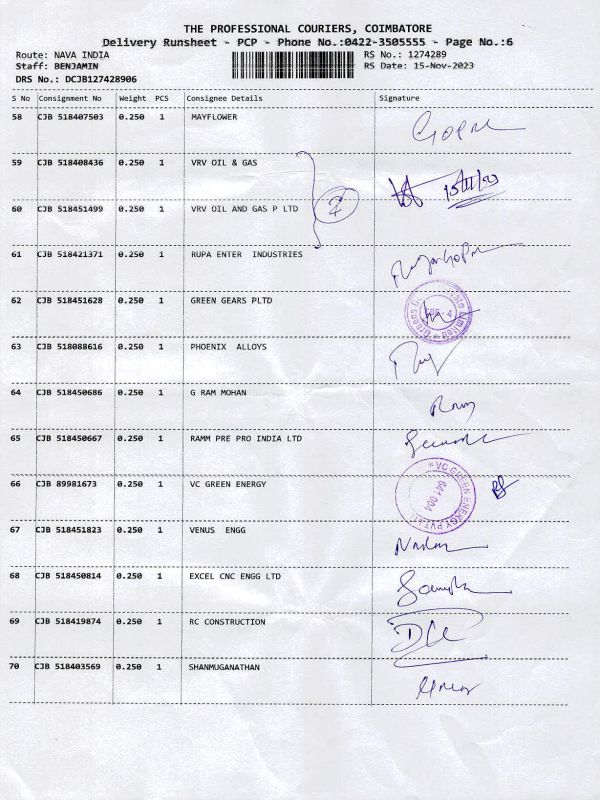 THE PROFESSIONAL COURIERS, COIMBATORE
Delivery Runsheet - PCP - Phone No.:0422-3505555 - Page No.:6
Route: NAVA INDIA RS No.: 1274289
Staff: BENJAMIN RS Date: 15-Nov-2023
DRS No.: DCJB127428906
S No Consignment No Weight PCS Consignee Details Signature
58 CJB 518407503 0.250 1 MAYFLOWER
59 CJB 518408436 0.250 1 VRV OIL & GAS 15/11/23
60 CJB 518451499 0.250 1 VRV OIL AND GAS P LTD 2
61 CJB 518421371 0.250 1 RUPA ENTER INDUSTRIES
62 CJB 518451628 0.250 1 GREEN GEARS PLTD
63 CJB 518088616 0.250 1 PHOENIX ALLOYS
64 CJB 518450686 0.250 1 G RAM MOHAN
65 CJB 518450667 0.250 1 RAMM PRE PRO INDIA LTD
66 CJB 89981673 0.250 1 VC GREEN ENERGY VC GREEN ENERGY PVT 641 004
67 CJB 518451823 0.250 1 VENUS ENGG
68 CJB 518450814 0.250 1 EXCEL CNC ENGG LTD
69 CJB 518419874 0.250 1 RC CONSTRUCTION
70 CJB 518403569 0.250 1 SHANMUGANATHAN